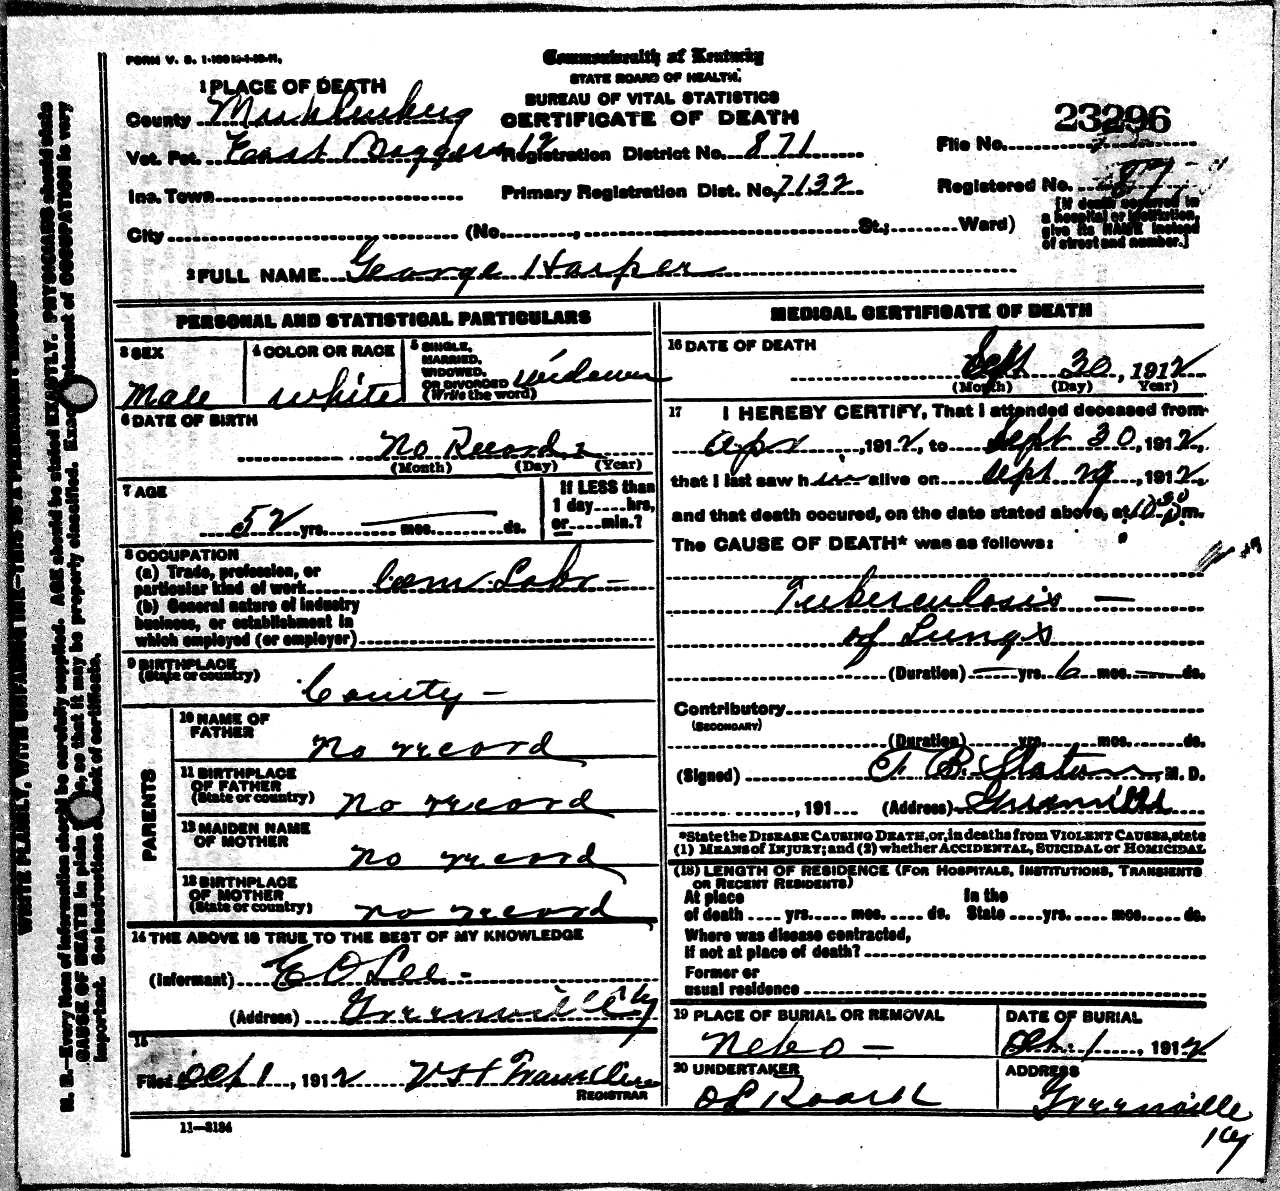 FORM V. S. 1-
Commonwealth of Kentucky
STATE BOARD OF HEALTH.
BUREAU OF VITAL STATISTICS
CERTIFICATE OF DEATH
1 PLACE OF DEATH
County Muchlenberg
Vot. Pct. East 12 Registration District No. 871
File No. 23296
Inc. Town Primary Registration Dist. No. 7132
Registered No. 87
City (No. , St.; Ward)
[If death occurred in
a hospital or institution,
give its NAME instead
of street and number.]
2 FULL NAME George Harper
PERSONAL AND STATISTICAL PARTICULARS
3 SEX
Male
4 COLOR OR RACE
white
5 SINGLE,
MARRIED,
WIDOWED,
OR DIVORCED widower
(Write the word)
6 DATE OF BIRTH
No Record
(Month) (Day) (Year)
7 AGE
52 yrs. mos. ds.
If LESS than
1 day hrs,
or min.?
8 OCCUPATION
(a) Trade, profession, or
particular kind of work
(b) General nature of industry
business, or establishment in
which employed (or employer)
9 BIRTHPLACE
(State or country)
County –
PARENTS
10 NAME OF
FATHER
no record
11 BIRTHPLACE
OF FATHER
(State or country)
no record
12 MAIDEN NAME
OF MOTHER
no record
13 BIRTHPLACE
OF MOTHER
(State or country)
no record
14 THE ABOVE IS TRUE TO THE BEST OF MY KNOWLEDGE
(Informant) E O Lee -
(Address) Greenville Ky
15
Filed Oct 1, 1912
REGISTRAR
11—3184
MEDICAL CERTIFICATE OF DEATH
16 DATE OF DEATH
Sept 30, 1912
(Month) (Day) Year)
17 I HEREBY CERTIFY, That I attended deceased from
Apr , 1912, to Sept 30, 1912,
that I last saw him alive on Sept 29, 1912,
and that death occured, on the date stated above, at 10 30 P m.
The CAUSE OF DEATH* was as follows:
Tuberculosis —
of Lungs
(Duration) — yrs. 6 mos. — ds.
Contributory
(SECONDARY)
(Duration) yrs. mos. ds.
(Signed) T B Slaton, M. D.
, 191 (Address) Greenville
*State the DISEASE CAUSING DEATH, or, in deaths from VIOLENT CAUSES, state
(1) MEANS of INJURY; and (2) whether ACCIDENTAL, SUICIDAL or HOMICIDAL
(18) LENGTH OF RESIDENCE (FOR HOSPITALS, INSTITUTIONS, TRANSIENTS
OR RECENT RESIDENTS)
At place
of death yrs. mos. ds.
In the
State yrs. mos. ds.
Where was disease contracted,
if not at place of death?
Former or
usual residence
19 PLACE OF BURIAL OR REMOVAL
Nebo –
DATE OF BURIAL
Oct. 1, 1912
20 UNDERTAKER
O L Roark
ADDRESS
Greenville
Ky
WRITE PLAINLY, WITH UNFADING INK—THIS IS A PERMANENT RECORD
N. B.—Every item of information should be carefully supplied. AGE should be stated EXACTLY. PHYSICIANS should state
CAUSE OF DEATH in plain , so that it may be properly classified. Exact statement of OCCUPATION is very
important. See instructions back of certificate.